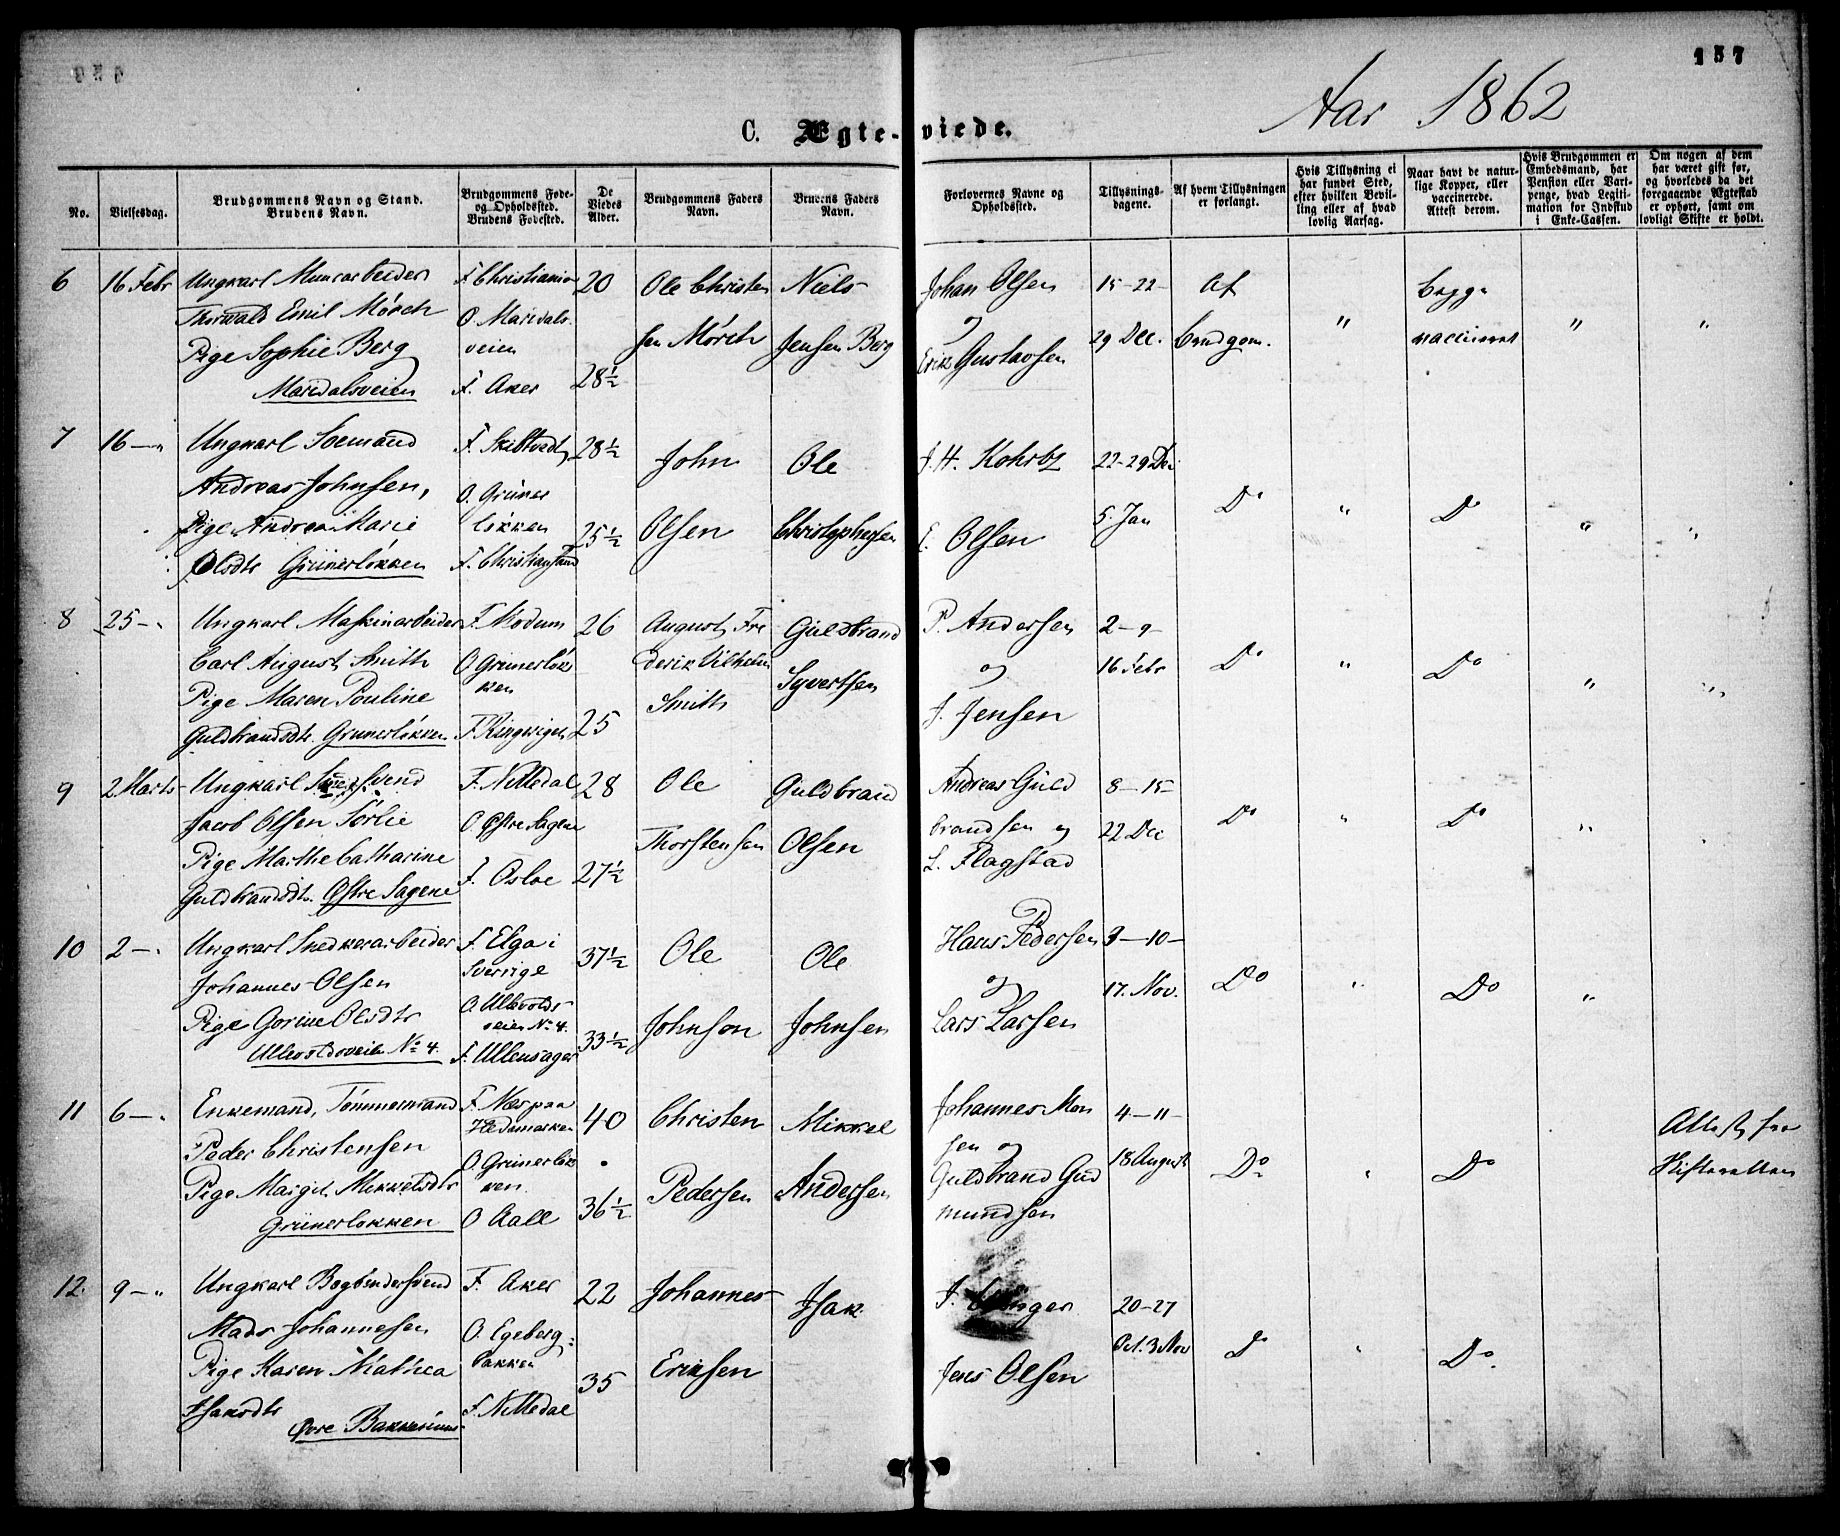 157
Aar 1862
C. Ægte-viede.
No.
Vielsesdag.
Brudgommens Navn og Stand.
Brudens Navn.
Brudgommens Føde-
og Opholdssted.
Brudens Fødested.
De
Viedes
Alder.
Brudgommens Faders
Navn.
Brudens Faders
Navn.
Forlovernes Navne og
Opholdssted.
Tillysnings-
dagene.
Af hvem Tillysningen
er forlangt.
Hvis Tillysning ei
har fundet Sted,
efter hvilken Bevil-
ling eller af hvad
lovlig Aarsag.
Naar havt de natur-
lige Kopper, eller
vaccinerede.
Attest derom.
Hvis Brudgommen er
Embedsmand, har
Pension eller Vart-
penge, hvad Legiti-
mation for Indskud
i Enke-Cassen.
Om nogen af dem
har været gift før,
og hvorledes da det
foregaaende Ægteskab
er ophørt, samt om
lovligt Skifte er holdt.
6
16 Febr
Ungkarl Murarbeider
Thorwald Emil Mörch
Pige Sophie Berg
Maridalsveien
F. Christiania
O. Maridals
veien
F. Aker
20
28½
Ole Christen
sen Mörch
Niels
Jensen Berg
Johan Olsen
og
Erik Gustavsen
15-22-
29 Dec.
Af
Brudgom.
"
begge
vaccineret
"
"
7
16 — "
Ungkarl Soemand
Andreas Johnsen,
Pige Andrea Marie
Olsdtr Grünerløkken
F. Skibtvedt
O. Grüner
løkken
F. Christiansand
28½
25½
John
Olsen
Ole
Christophersen
J. H. Kohrtz
E. Olsen
22-29 Dec
5. Jan
Do
"
Do
"
"
8
25 — "
Ungkarl Maskinarbeider
Carl August Smith
Pige Maren Pouline
Guldbrandsdtr. Grünerløkken
F. Modum
O. Grünerløk
ken
F. Ringerige
26
25
August Fre
derik Vilhelm
Smith
Guldbrand
Syvertsen
P. Andersen
og
J. Jensen
2-9-
16 Febr
Do
"
Do
"
"
9
2 Marts
Ungkarl Svend
Jacob Olsen Sörlie
Pige Marthe Catharine
Guldbrandsdtr. Østre Sagene
F. Nittedal
O. Østre Sagene
F. Osloe
28
27½
Ole
Thorstensen
Guldbrand
Olsen
Andreas Guld
brandsen og
L. Flagstad
8-15-
22 Dec
Do
"
Do
"
10
2 — "
Ungkarl Snedkerarbeider
Johannes Olsen
Pige Gorine Olsdtr
Ullevoldsveien No 4.
F. Elga i
Sverrige
O. Ullevolds
veien No 4.
F. Ullensager
37½
33½
Ole
Johnson
Ole
Johnsen
Hans Pedersen
og
Lars Larsen
3-10-
17. Nov.
Do
"
Do
"
11
6 — "
Enkemand, Tömmermand
Peder Christensen
Pige Margit Mikkelsdtr
Grünerløkken
F. Næs paa
Hedemarken
O. Grünerløk
ken
O Aall
40
36½
Christen
Pedersen
Mikkel
Andersen
Johannes Mon
sen og
Guldbrand Gud
mundsen
4-11-
18 August
Do
"
Do
Attest fra
Skifteretten
12.
9 — "
Ungkarl Bogbindersvend
Mads Johannesen
Pige Karen Mathea
Isaksdtr
Øvre Bakkehuus
F. Aker
O. Egeberg-
bakken
F. Nittedal
22
35
Johannes
Eriksen
Isak
Jens Olsen
20-27
Oct. 3 Nov
Do
"
Do.